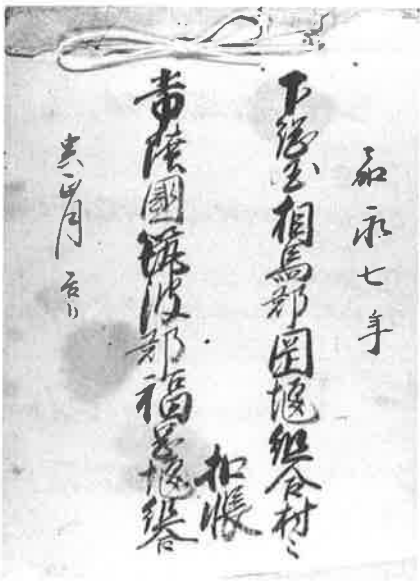 嘉永七年
下総国相馬郡岡堰組合村々
扣帳
常陸國筑波郡福岡堰組合
寅正月吉日